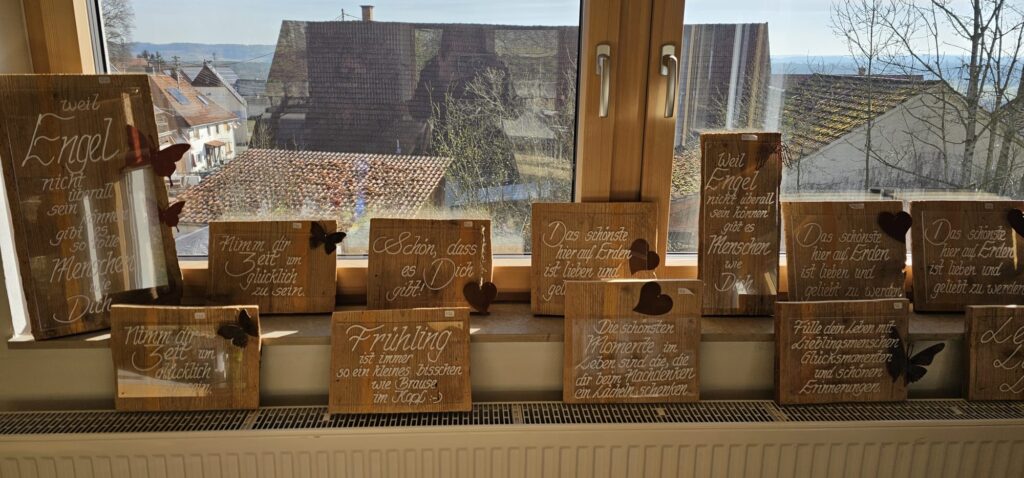 weil
Engel
nicht überall
sein können
gibt es
so tolle
Menschen
wie
Dich
Nimm dir
Zeit um
Glücklich
zu sein.
Schön, dass
es Dich
gibt!
Das schönste
hier auf Erden
ist lieben und
geliebt
Weil
Engel
nicht überall
sein können
gibt es
Menschen
wie
Dich
Das schönste
hier auf Erden
ist lieben und
geliebt zu werden
Das schönste
hier auf Erden
ist lieben und
geliebt zu werden
Nimm dir
Zeit um
glücklich
zu sein.
Frühling
ist immer
so ein kleines bisschen
wie Brause
im Kopf :-)
Die schönsten
Momente im
Leben sind die, die
dir beim Nachdenken
ein Lächeln
Fülle dein Leben mit
Lieblingsmenschen
Glücksmomenten
und schönen
Erinnerungen.